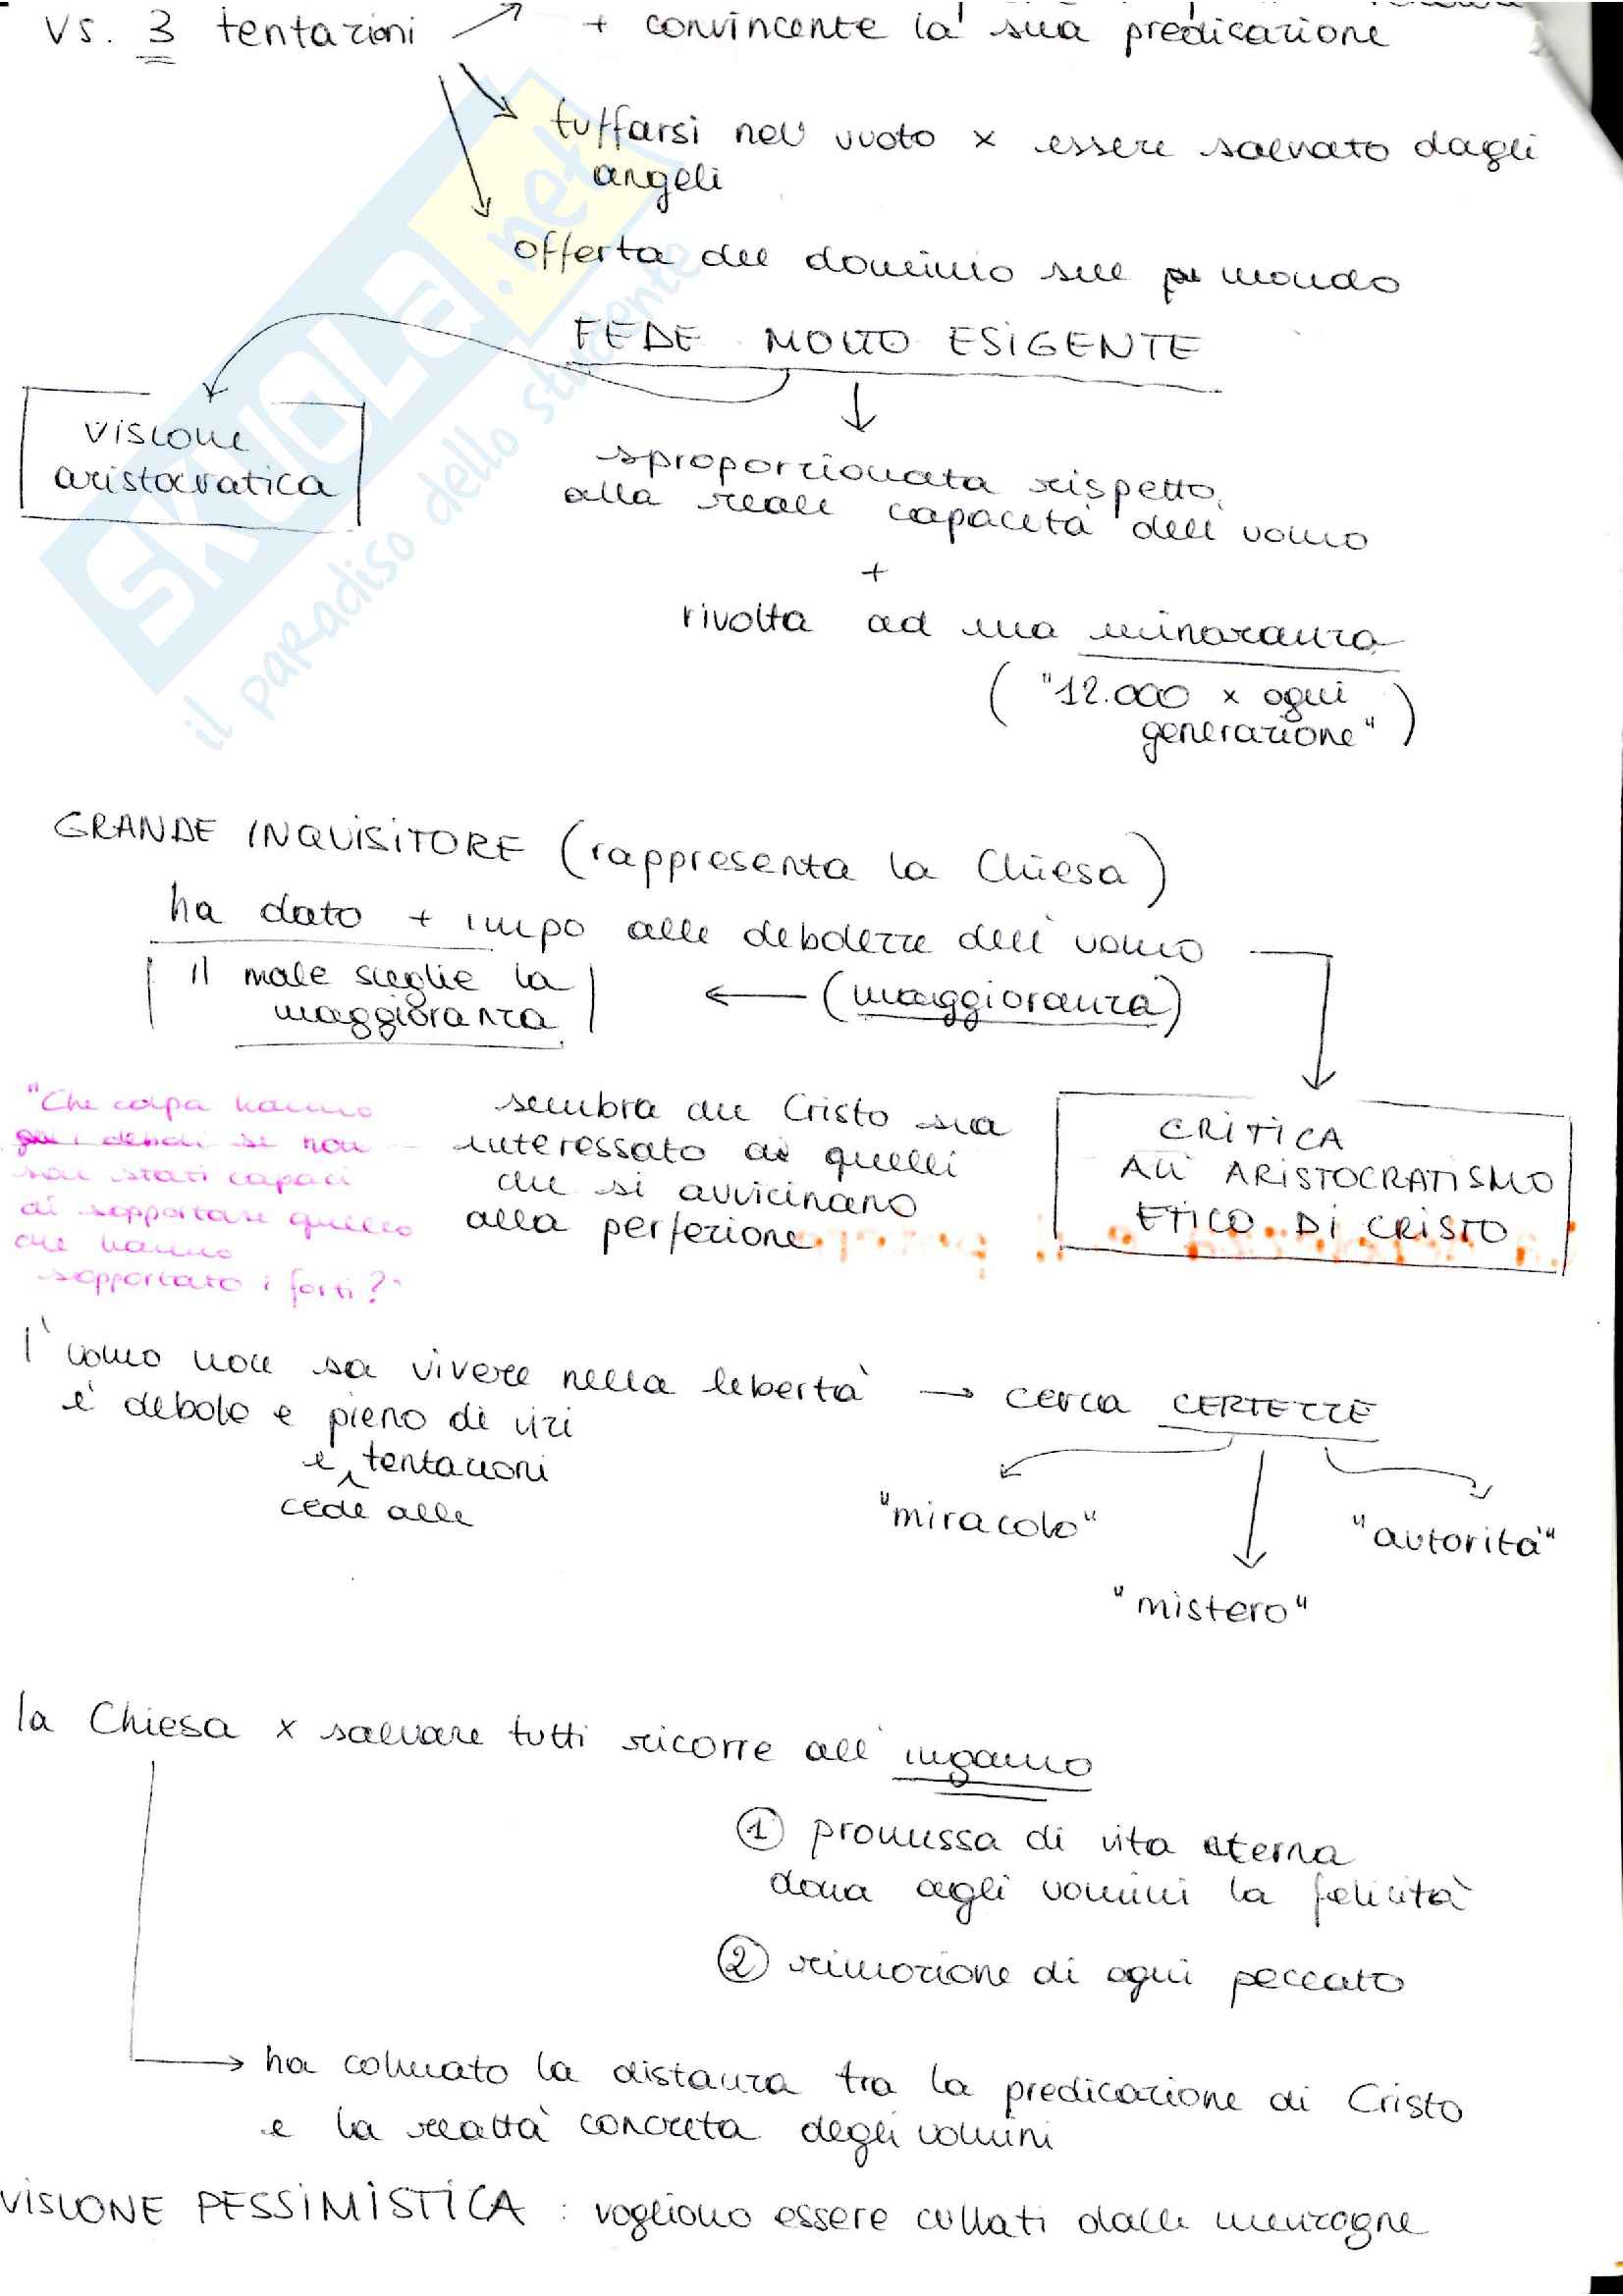 vs. 3 tentazioni + convincente la sua predicazione
tuffarsi nel vuoto x essere salvato dagli
angeli
offerta del dominio sul mondo
FEDE MOLTO ESIGENTE
visione
aristocratica
sproporzionata rispetto
alla reale capacità dell'uomo
+
rivolta ad una minoranza
("12.000 x ogni
generazione")
SKUOLA.net
il paradiso dello studente
GRANDE INQUISITORE (rappresenta la Chiesa)
ha dato + impo alle debolezze dell'uomo
il male sceglie la
maggioranza
(maggioranza)
"Che colpa hanno
i deboli se non
son stati capaci
di sopportare quello
che hanno
sopportato i forti?"
sembra che Cristo sia
interessato a quelli
che si avvicinano
alla perfezione
CRITICA
ALL'ARISTOCRATISMO
ETICO DI CRISTO
l'uomo non sa vivere nella libertà → cerca CERTEZZE
è debole e pieno di vizi
e tentazioni
cede alle
"miracolo"
"autorità"
"mistero"
la Chiesa x salvare tutti ricorre all'inganno
① promessa di vita eterna
dona agli uomini la felicità
② rimozione di ogni peccato
ha colmato la distanza tra la predicazione di Cristo
e la realtà concreta degli uomini
VISIONE PESSIMISTICA : vogliono essere cullati dalle menzogne